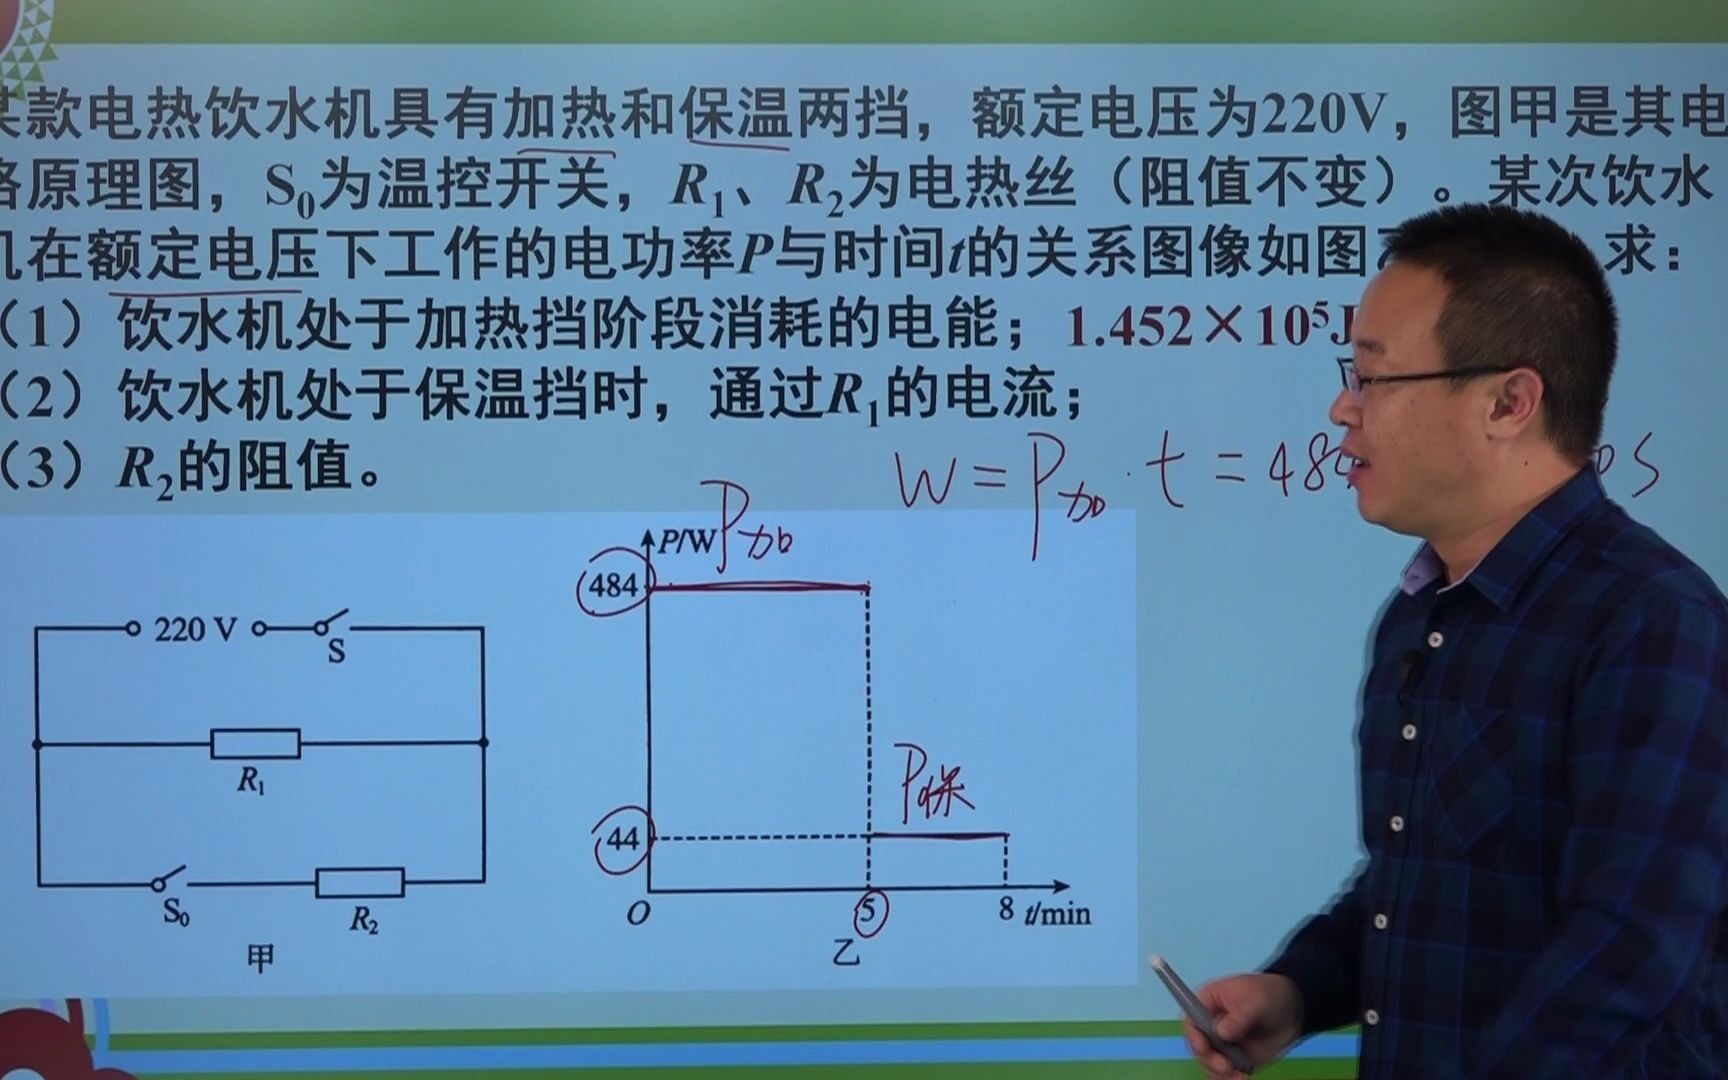 款电热饮水机具有加热和保温两挡，额定电压为220V，图甲是其电
路原理图，S₀为温控开关，R₁、R₂为电热丝（阻值不变）。某次饮水
机在额定电压下工作的电功率P与时间t的关系图像如图 求：
（1）饮水机处于加热挡阶段消耗的电能；1.452×10⁵J
（2）饮水机处于保温挡时，通过R₁的电流；
（3）R₂的阻值。
W=P加·t=48 0S
P/W
P加
484
220 V
S
R₁
P保
44
S₀
R₂
O
5
8
t/min
甲
乙